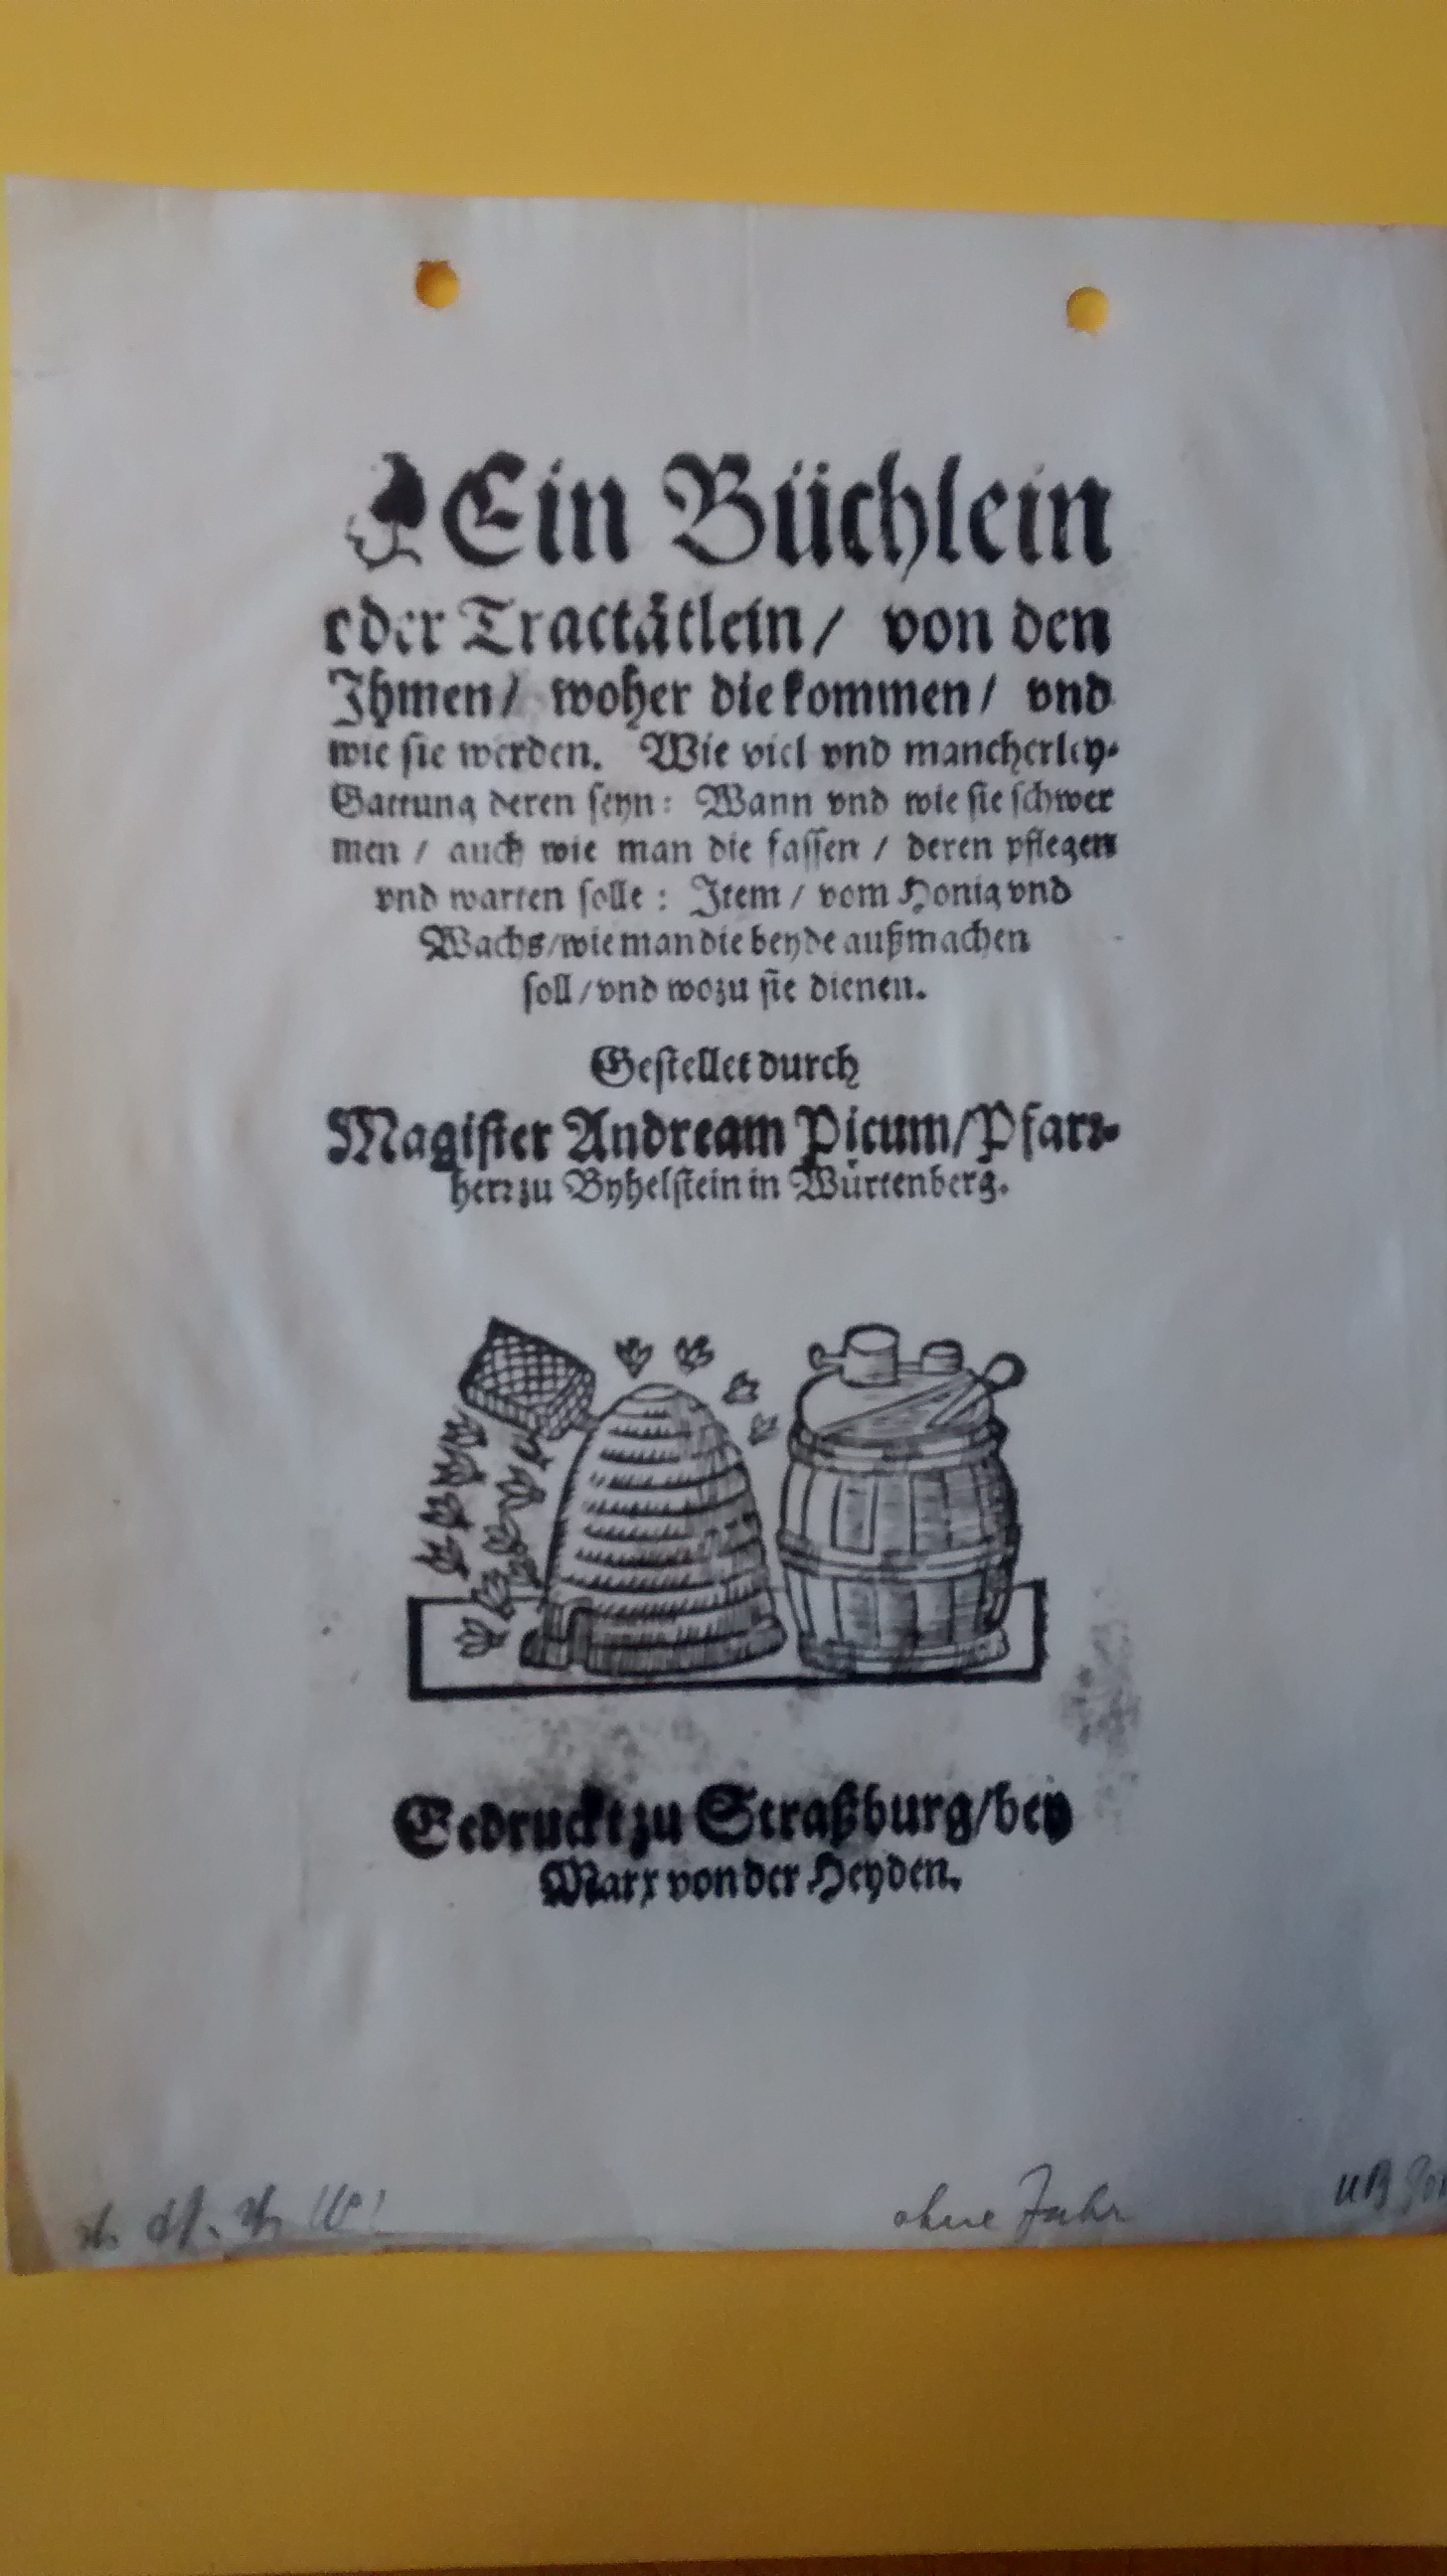 Ein Büchlein
oder Tractätlein / von den
Ihmen / woher die kommen / vnd
wie sie werden. Wie viel vnd mancherley
Gattung deren seyn: Wann vnd wie sie schwer
men / auch wie man die fassen / deren pflegen
vnd warten solle: Item / vom Honig vnd
Wachs / wie man die beyde außmachen
soll / vnd wozu sie dienen.
Gestellet durch
Magister Andream Picum / Pfarr-
herr zu Byhelstein in Würtenberg.
Gedruckt zu Straßburg / bey
Marx von der Heyden.
ohne Jahr
UB